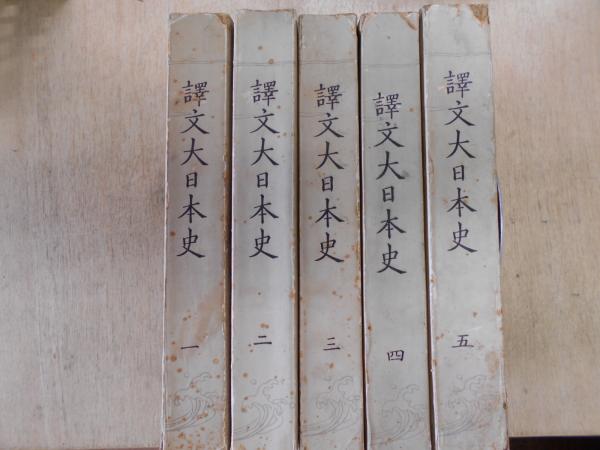 譯文大日本史 一
譯文大日本史 二
譯文大日本史 三
譯文大日本史 四
譯文大日本史 五